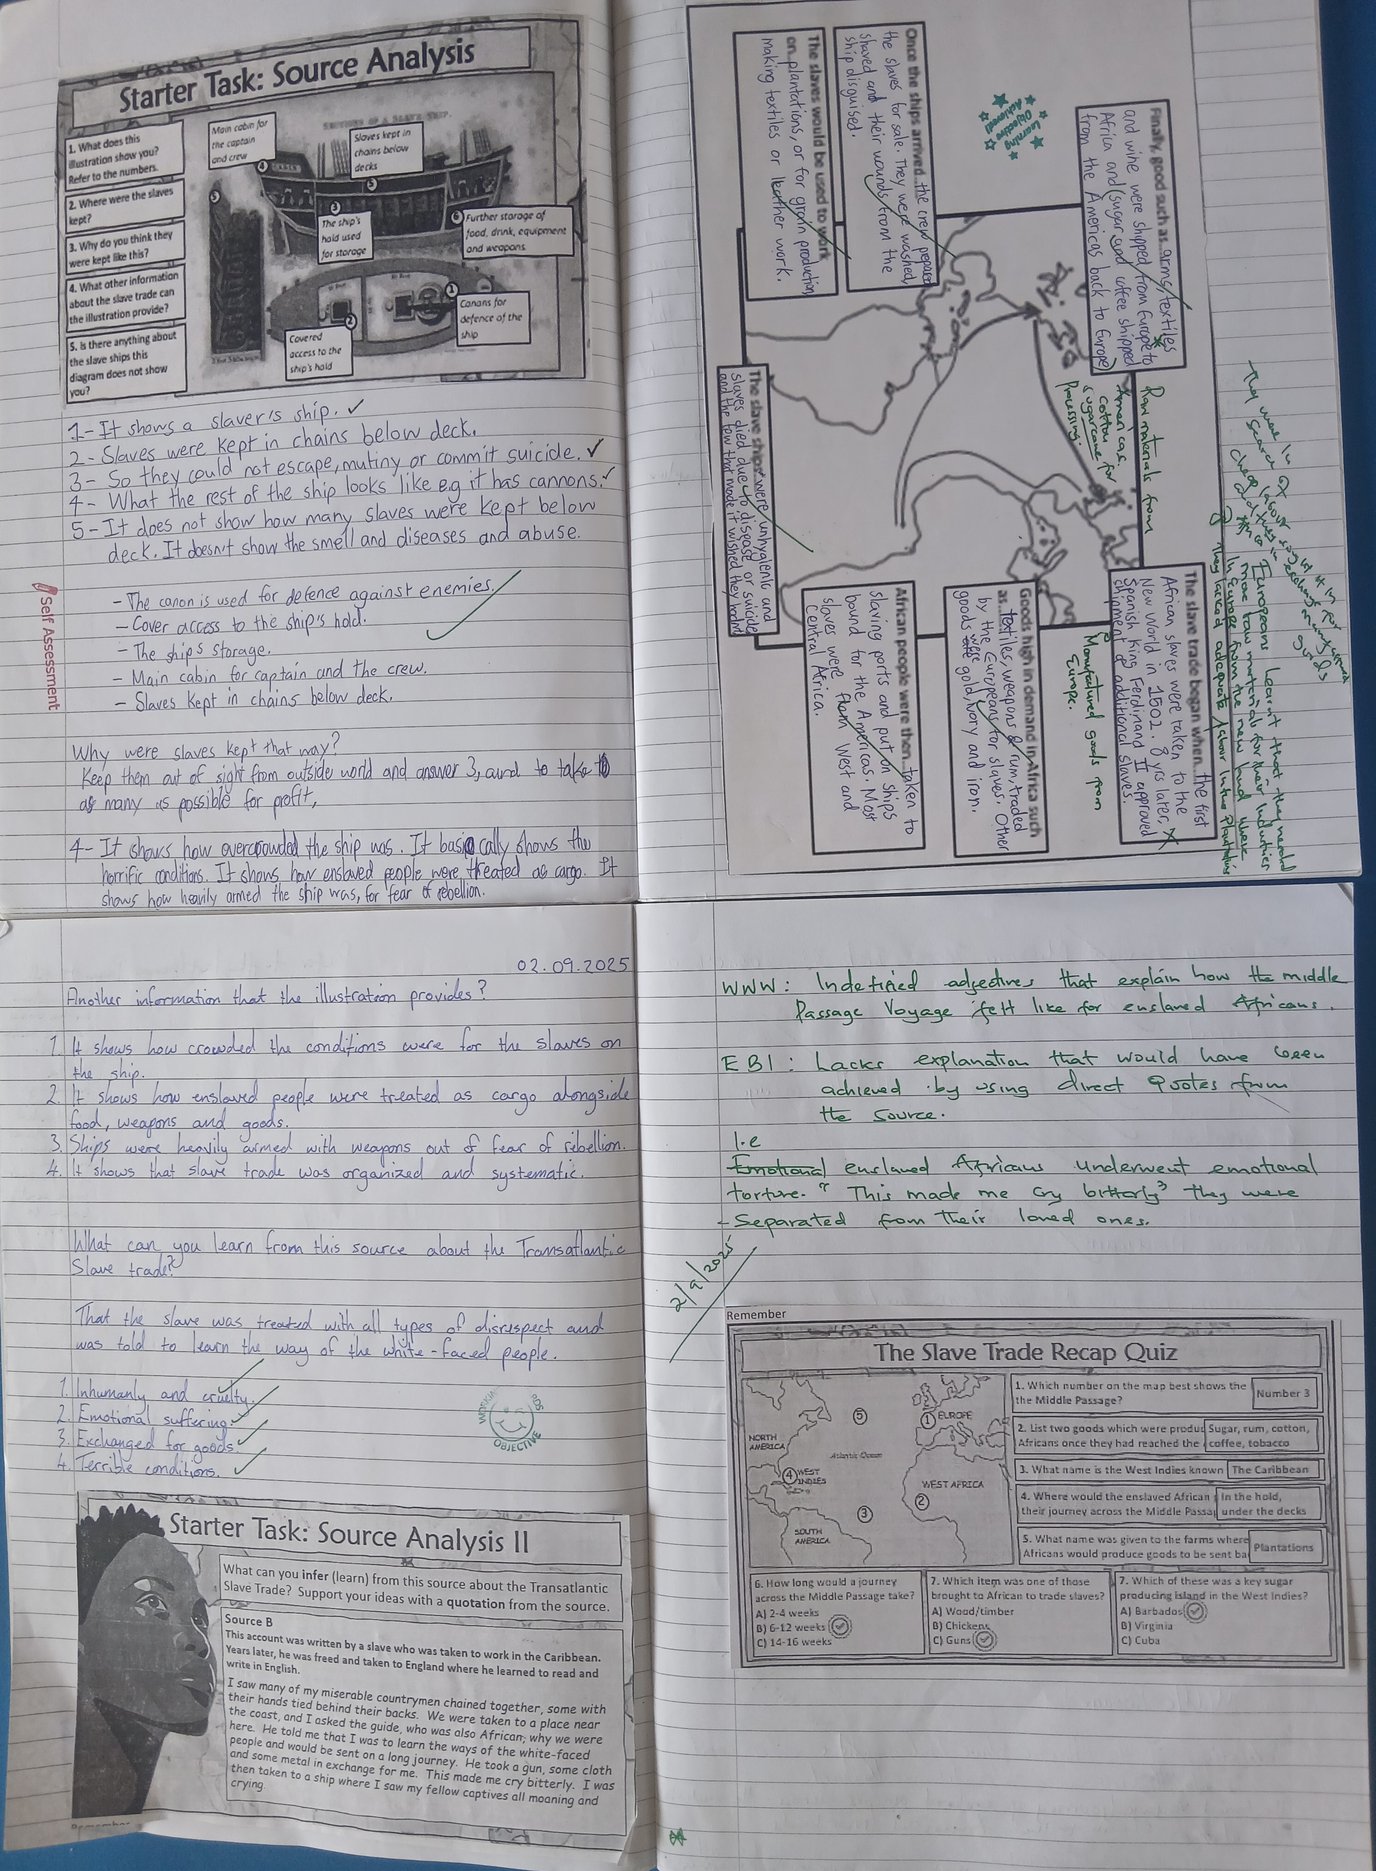 Starter Task: Source Analysis
1. What does this
illustration show you?
Refer to the numbers.
2. Where were the slaves
kept?
3. Why do you think they
were kept like this?
4. What other information
about the slave trade can
the illustration provide?
5. Is there anything about
the slave ships this
diagram does not show
you?
SECTIONS OF A SLAVE SHIP.
Main cabin for
the captain
and crew
Slaves kept in
chains below
decks
The ship's
hold used
for storage
Further storage of
food, drink, equipment
and weapons.
Canons for
defence of the
ship
Covered
access to the
ship's hold
1 - It shows a slaver's ship.
2 - Slaves were kept in chains below deck.
3 - So they could not escape, mutiny or commit suicide.
4 - What the rest of the ship looks like e.g it has cannons.
5 - It does not show how many slaves were kept below
deck. It doesn't show the smell and diseases and abuse.
Self Assessment
- The canon is used for defence against enemies.
- Cover access to the ship's hold.
- The ship's storage.
- Main cabin for captain and the crew.
- Slaves kept in chains below deck.
Why were slaves kept that way?
Keep them out of sight from outside world and answer 3, and to take
as many as possible for profit,
4- It shows how overcrowded the ship was. It basically shows the
horrific conditions. It shows how enslaved people were treated as cargo. It
shows how heavily armed the ship was, for fear of rebellion.
Finally, good such as arms, textiles
and wine were shipped from Europe to
Africa and (sugar and coffee shipped
from the Americas back to Europe)
Learning
Objective
Achieved!
Once the ships arrived.. the crew prepared
the slaves for sale. They were washed,
shaved and their wounds from the
ship disguised.
The slaves would be used to work
on.. plantations, or for grain production,
making textiles or leather work.
The slave ships were unhygienic and
slaves died due to disease or suicide
and the few that made it wished they hadnt
The slave trade began when.. the first
African slaves were taken to the
New World in 1502. 8 yrs later,
Spanish King Ferdinand II approved
shipment of additional slaves.
Goods high in demand in Africa such
as.. textiles, weapons & rum, traded
by the Europeans for slaves. Other
goods were gold, ivory and iron.
African people were then.. taken to
slaving ports and put on ships
bound for the Americas. Most
slaves were from West and
Central Africa.
Raw materials from
cotton,
sugarcane for
Processing.
Manufactured goods from
Europe.
They were in
Europeans learnt that they needed
more raw materials for their industries
in Europe from the new land where
they lacked adequate labour in the plantations
02.09.2025
Another information that the illustration provides?
1. It shows how crowded the conditions were for the slaves on
the ship.
2. It shows how enslaved people were treated as cargo alongside
food, weapons and goods.
3. Ships were heavily armed with weapons out of fear of rebellion.
4. It shows that slave trade was organized and systematic.
What can you learn from this source about the Transatlantic
Slave trade?
That the slave was treated with all types of disrespect and
was told to learn the way of the white-faced people.
1. Inhumanly and cruelty.
2. Emotional suffering.
3. Exchanged for goods.
4. Terrible conditions.
OBJECTIVE
Starter Task: Source Analysis II
What can you infer (learn) from this source about the Transatlantic
Slave Trade? Support your ideas with a quotation from the source.
Source B
This account was written by a slave who was taken to work in the Caribbean.
Years later, he was freed and taken to England where he learned to read and
write in English.
I saw many of my miserable countrymen chained together, some with
their hands tied behind their backs. We were taken to a place near
the coast, and I asked the guide, who was also African, why we were
here. He told me that I was to learn the ways of the white-faced
people and would be sent on a long journey. He took a gun, some cloth
and some metal in exchange for me. This made me cry bitterly. I was
then taken to a ship where I saw my fellow captives all moaning and
crying.
WWW: Indefined adjectives that explain how the middle
Passage Voyage felt like for enslaved Africans.
EBI: Lacks explanation that would have been
achieved by using direct Quotes from
the source.
I.e
Emotional enslaved Africans underwent emotional
torture. "This made me cry bitterly" they were
- Separated from their loved ones.
2/9/2025
Remember
The Slave Trade Recap Quiz
NORTH
AMERICA
EUROPE
Atlantic Ocean
WEST
INDIES
WEST AFRICA
SOUTH
AMERICA
1. Which number on the map best shows the
the Middle Passage?
Number 3
2. List two goods which were produc
Africans once they had reached the
Sugar, rum, cotton,
coffee, tobacco
3. What name is the West Indies known
The Caribbean
4. Where would the enslaved African
their journey across the Middle Passa
In the hold,
under the decks
5. What name was given to the farms where
Africans would produce goods to be sent ba
Plantations
6. How long would a journey
across the Middle Passage take?
A) 2-4 weeks
B) 6-12 weeks
C) 14-16 weeks
7. Which item was one of those
brought to African to trade slaves?
A) Wood/timber
B) Chickens
C) Guns
7. Which of these was a key sugar
producing island in the West Indies?
A) Barbados
B) Virginia
C) Cuba